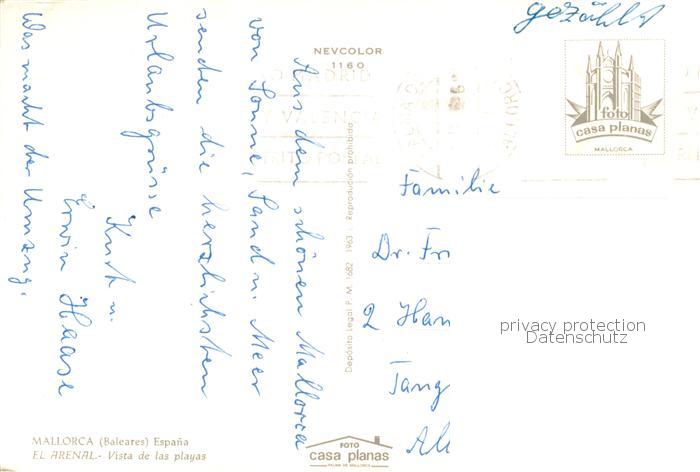 gezählt
NEVCOLOR
1160
foto
casa planas
MALLORCA
Aus dem schönen Mallorca
von Sonne, Sand u. Meer
senden die herzlichsten
Urlaubsgrüsse
Kurt u.
Erwin Haase
Was macht der Umzug.
Depósito Legal P. M. 1682 - 1963 - Reproducción prohibida
Familie
Dr. Fri
2 Han
Tang
Al
privacy protection
Datenschutz
MALLORCA (Baleares) España
EL ARENAL.- Vista de las playas
FOTO
casa planas
PALMA DE MALLORCA